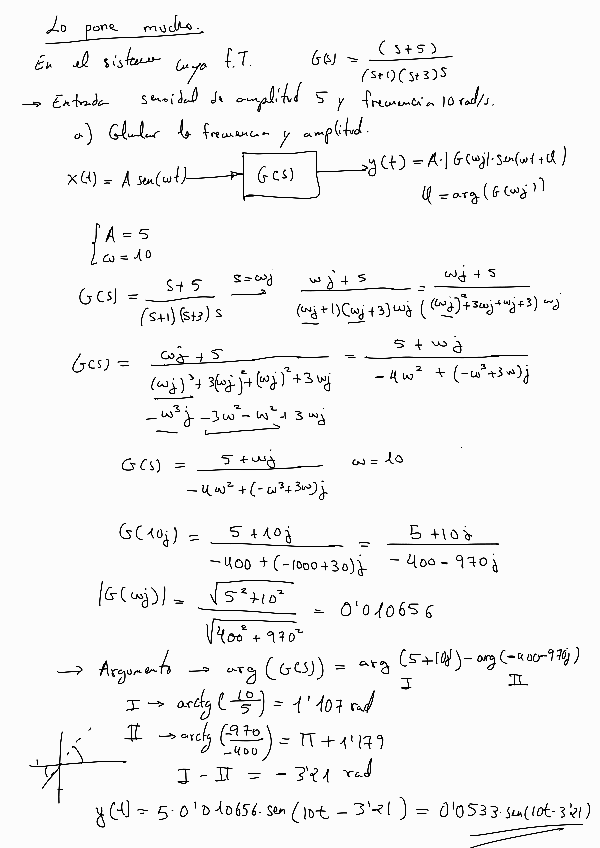 Lo pone mucho.
En el sistema cuya f.T. G(s) = (s+5) / (s+1)(s+3)s
→ Entrada senoidal de amplitud 5 y frecuencia 10 rad/s.
a) Calcular la frecuencia y amplitud.
x(t) = A sen(wt) → G(s) → y(t) = A·|G(wj)|·sen(wt+φ)
φ = arg(G(wj))
{ A = 5
ω = 10
G(s) = s+5 / (s+1)(s+3)s s=wj → wj+5 / (wj+1)(wj+3)wj = wj+5 / ((wj)²+3wj+wj+3)wj
G(s) = wj+5 / (wj)³+3(wj)²+(wj)²+3wj = 5+wj / -4w²+(-w³+3w)j
-w³j -3w²-w²+3wj
G(s) = 5+wj / -4w²+(-w³+3w)j ω=10
G(10j) = 5+10j / -400+(-1000+30)j = 5+10j / -400-970j
|G(wj)| = √5²+10² / √400²+970² = 0'010656
→ Argumento → arg(G(s)) = arg(5+10j)-arg(-400-970j)
I II
I → arctg(10/5) = 1'107 rad
II → arctg(-970/-400) = π+1'179
I - II = -3'21 rad
y(t) = 5·0'010656·sen(10t-3'21) = 0'0533·sen(10t-3'21)